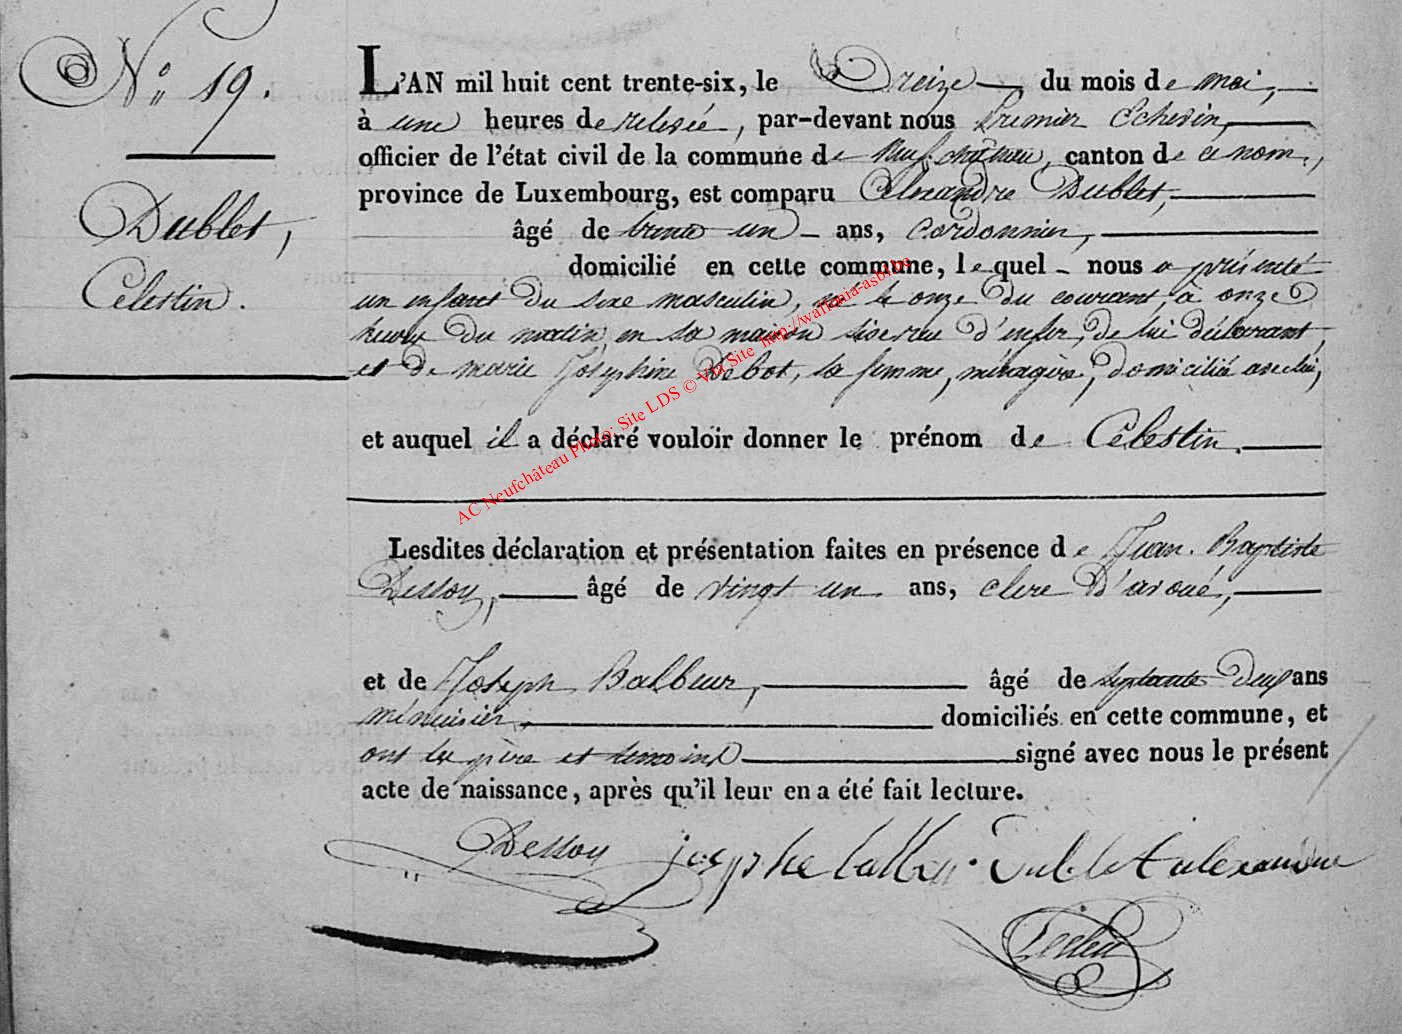 N° 19.
Dublet,
Célestin.
L'AN mil huit cent trente-six, le Treize du mois de mai,
à une heures de relevée, par-devant nous Premier Echevin,
officier de l'état civil de la commune de Neufchâteau, canton de ce nom,
province de Luxembourg, est comparu Alexandre Dublet,
âgé de trente un ans, Cordonnier,
domicilié en cette commune, lequel nous a présenté
un enfant du sexe masculin, né le onze du courant, à onze
heures du matin, en sa maison sise rue d'enfer, de lui déclarant,
et de marie Joséphine Debot, sa femme, ménagère, domiciliée avec lui,
et auquel il a déclaré vouloir donner le prénom de Célestin.
Lesdites déclaration et présentation faites en présence de Jean-Baptiste
Dessoy, âgé de vingt un ans, clerc d'avoué,
et de Joseph Balbeur, âgé de septante deux ans
menuisier, domiciliés en cette commune, et
ont les père et témoins signé avec nous le présent
acte de naissance, après qu'il leur en a été fait lecture.
Dessoy Dublet alexandre
AC Neufchâteau Photo: Site LDS © Via Site http://wallonia-asbl.be